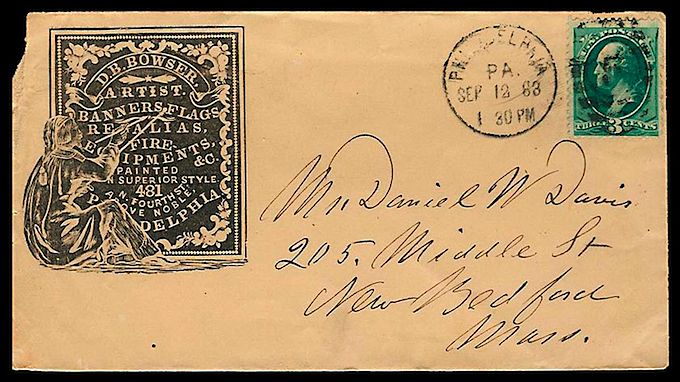 D.B. BOWSER.
ARTIST.
BANNERS, FLAGS
REGALIAS,
FIRE-
IPMENTS,
&C.
PAINTED
N SUPERIOR STYLE
481
N. FOURTH ST.
VE NOBLE
P DELPHIA
PHILADELPHIA
PA.
SEP 12 83
1 30 PM
U.S. POSTAGE
THREE 3 CENTS
Mr Daniel W Davis
205. Middle St
New Bedford
Mass.